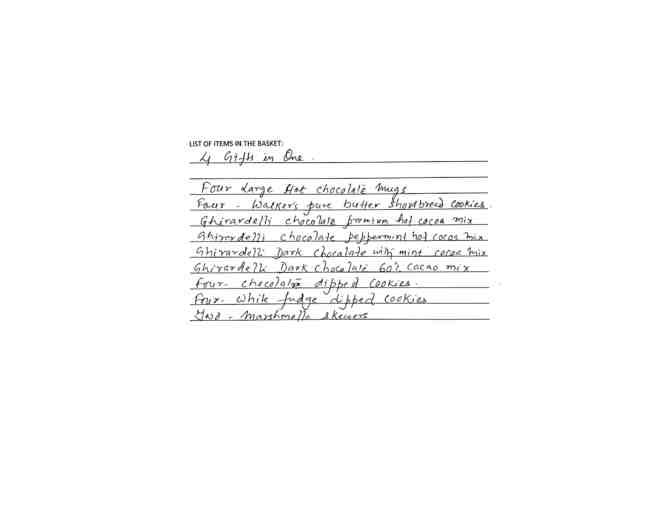 LIST OF ITEMS IN THE BASKET:
4 Gifts in One.
Four Large Hot chocolate mugs
Four - Walker's pure butter Shortbread cookies.
Ghirardelli chocolate premium hot cocoa mix
Ghirardelli chocolate peppermint hot cocoa mix
Ghirardelli Dark chocolate with mint cocoa mix
Ghirardelli Dark chocolate 60% cacao mix
Four - chocolate dipped cookies.
Four - while fudge dipped cookies
Two - marshmello skewers